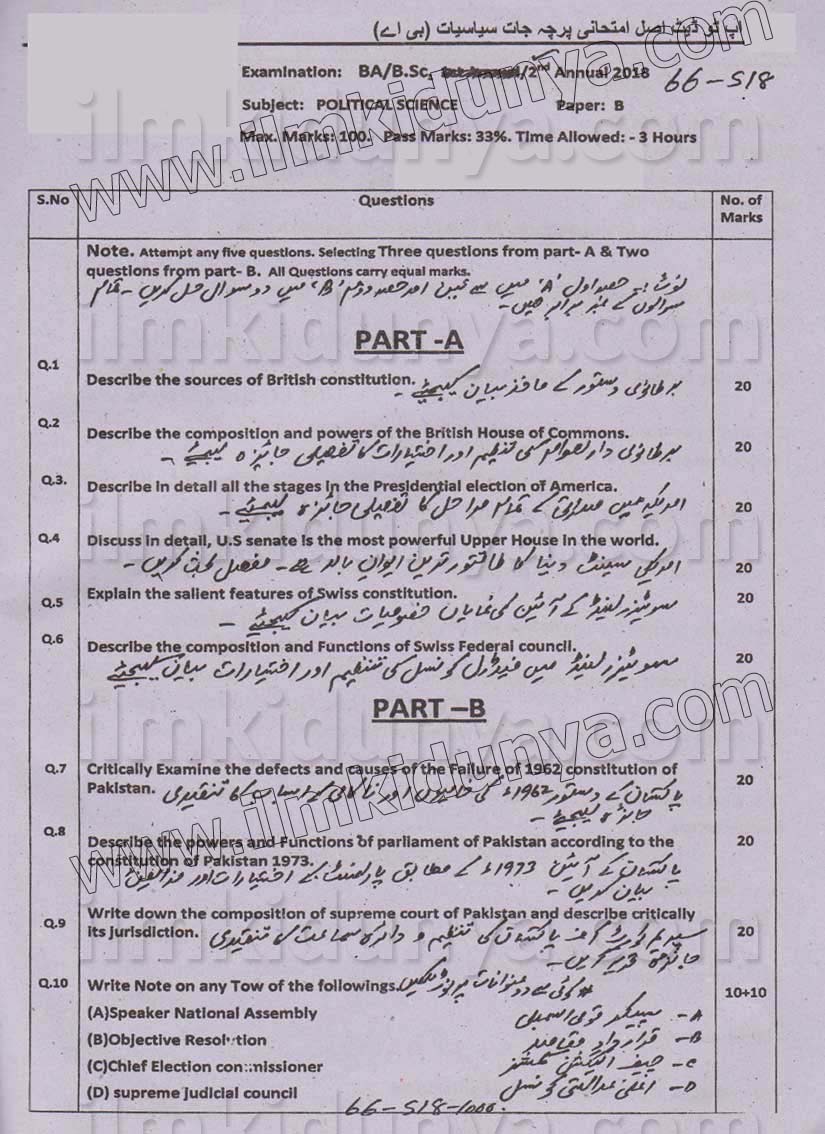 اپ ٹو ڈیٹ اصل امتحانی پرچہ جات سیاسیات (بی اے)
Examination: BA/B.Sc, /2nd Annual 2018 66-S18
Subject: POLITICAL SCIENCE Paper: B
Max. Marks: 100. Pass Marks: 33%. Time Allowed: - 3 Hours
S.No Questions No. of Marks
Note. Attempt any five questions. Selecting Three questions from part- A & Two
questions from part- B. All Questions carry equal marks.
نوٹ:- حصہ اول 'A' میں سے تین اور حصہ دوم 'B' میں دو سوال حل کریں - تمام
سوالوں کے نمبر برابر ہیں -
PART -A
Q.1 Describe the sources of British constitution. برطانوی دستور کے ماخذ بیان کیجئیے 20
Q.2 Describe the composition and powers of the British House of Commons. 20
برطانوی دارلعوام کی تنظیم اور اختیارات کا تفصیلی جائزہ لیجئیے -
Q.3. Describe in detail all the stages in the Presidential election of America. 20
امریکہ میں کے تمام مراحل کا تفصیلی جائزہ لیجئیے -
Q.4 Discuss in detail, U.S senate is the most powerful Upper House in the world. 20
امریکی سینٹ دنیا کا طاقتور ترین ایوان بالا ہے - مفصل بحث کریں -
Q.5 Explain the salient features of Swiss constitution. سوئیٹزرلینڈ کے آئین کی نمایاں خصوصیات بیان کیجئیے 20
Q.6 Describe the composition and Functions of Swiss Federal council. 20
سوئیٹزرلینڈ میں فیڈرل کونسل کی تنظیم اور اختیارات بیان کیجئیے
PART –B
Q.7 Critically Examine the defects and causes of the Failure of 1962 constitution of 20
Pakistan. پاکستان کے دستور 1962ء کی خامیوں اور ناکامی کے اسباب کا تنقیدی
جائزہ لیجئیے -
Q.8 Describe the powers and Functions of parliament of Pakistan according to the 20
constitution of Pakistan 1973. پاکستان کے آئین 1973ء کے مطابق پارلیمنٹ کے اختیارات اور فرائض
بیان کریں -
Q.9 Write down the composition of supreme court of Pakistan and describe critically 20
its jurisdiction. سپریم کورٹ آف پاکستان کی تنظیم و دائرہ سماعت کا تنقیدی
جائزہ کریں -
Q.10 Write Note on any Tow of the followings. کوئی سے دو عنوانات پر نوٹ لکھیں 10+10
(A)Speaker National Assembly A- سپیکر قومی اسمبلی
(B)Objective Resolution B- قرارداد مقاصد
(C)Chief Election commissioner C- چیف الیکشن کمشنر
(D) supreme Judicial council D- اعلیٰ عدالتی کونسل
66-S18-1000.
www.ilmkidunya.com
www.ilmkidunya.com
ilmkidunya.com
ilmkidunya.com
ilmkidunya.com
ilmkidunya.com